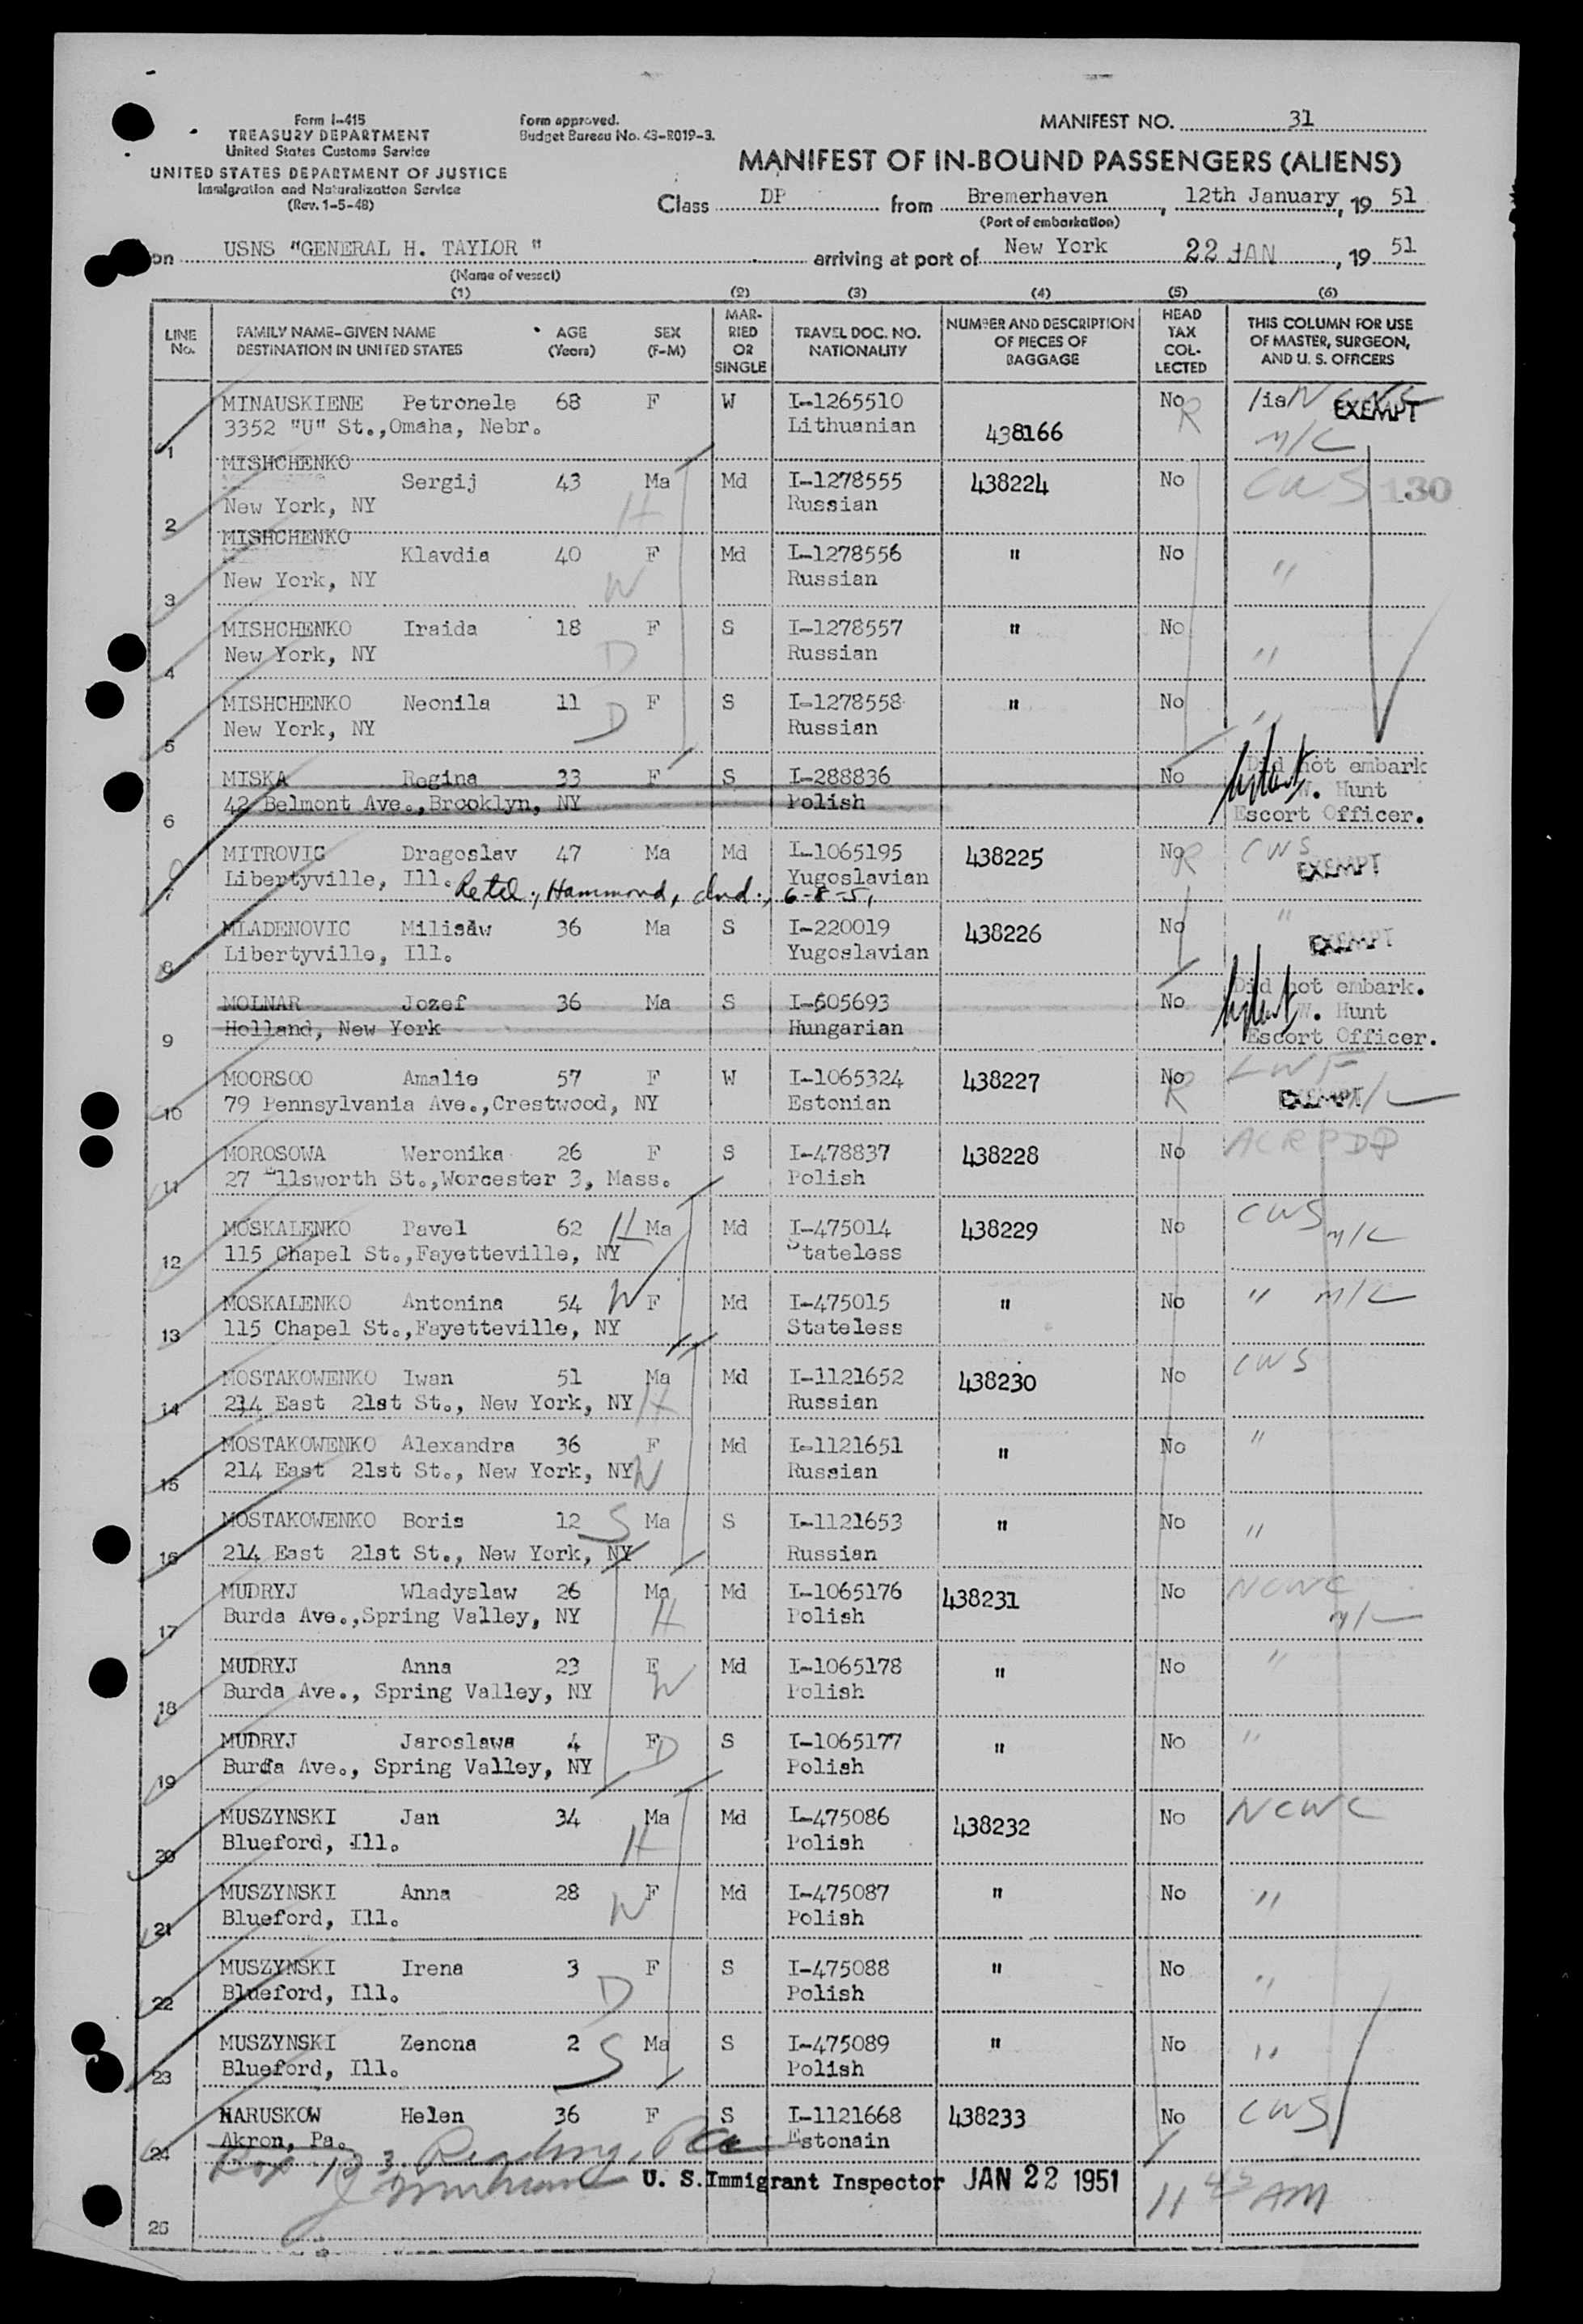 Form I-415
TREASURY DEPARTMENT
United States Customs Service
UNITED STATES DEPARTMENT OF JUSTICE
Immigration and Naturalization Service
(Rev. 1-5-48)
Form approved.
Budget Bureau No. 43-R019-3.
MANIFEST NO. 31
MANIFEST OF IN-BOUND PASSENGERS (ALIENS)
Class DP from Bremerhaven, 12th January, 19 51
(Port of embarkation)
on USNS "GENERAL H. TAYLOR " arriving at port of New York 22 JAN, 19 51
(Name of vessel)
(1) (2) (3) (4) (5) (6)
LINE No. FAMILY NAME-GIVEN NAME DESTINATION IN UNITED STATES AGE (Years) SEX (F-M) MAR-RIED OR SINGLE TRAVEL DOC. NO. NATIONALITY NUMBER AND DESCRIPTION OF PIECES OF BAGGAGE HEAD TAX COL-LECTED THIS COLUMN FOR USE OF MASTER, SURGEON, AND U. S. OFFICERS
MINAUSKIENE Petronele 68 F W I-1265510 No R /is/ NCWC EXEMPT
3352 "U" St.,Omaha, Nebr. Lithuanian 438166 M/C
1
MISHCHENKO
Sergij 43 Ma Md I-1278555 438224 No CWS 130
New York, NY H Russian
2
MISHCHENKO
Klavdia 40 F Md I-1278556 " No "
New York, NY W Russian
3
MISHCHENKO Iraida 18 F S I-1278557 " No
New York, NY D Russian "
4
MISHCHENKO Neonila 11 F S I-1278558 " No
New York, NY D Russian "
5
MISKA Regina 33 F S I-288836 No Did not embark
42 Belmont Ave.,Brooklyn, NY Polish W. Hunt
6 Escort Officer.
MITROVIC Dragoslav 47 Ma Md I-1065195 438225 No R CWS
Libertyville, Ill. Yugoslavian EXEMPT
7 Hammond, Ind., 6-8-51
MLADENOVIC Milisaw 36 Ma S I-220019 438226 No "
Libertyville, Ill. Yugoslavian EXEMPT
8
MOLNAR Jozef 36 Ma S I-605693 No Did not embark.
Holland, New York Hungarian W. Hunt
9 Escort Officer.
MOORSOO Amalie 57 F W I-1065324 438227 No R LWF
79 Pennsylvania Ave.,Crestwood, NY Estonian EXEMPT M/C
10
MOROSOWA Weronika 26 F S I-478837 438228 No ACRPDP
27 Ellsworth St.,Worcester 3, Mass. Polish
11
MOSKALENKO Pavel 62 H Ma Md I-475014 438229 No CWS
115 Chapel St.,Fayetteville, NY Stateless M/C
12
MOSKALENKO Antonina 54 W F Md I-475015 " No " M/C
115 Chapel St.,Fayetteville, NY Stateless
13
MOSTAKOWENKO Iwan 51 Ma Md I-1121652 438230 No CWS
214 East 21st St., New York, NY H Russian
14
MOSTAKOWENKO Alexandra 36 F Md I-1121651 " No "
214 East 21st St., New York, NY W Russian
15
MOSTAKOWENKO Boris 12 S Ma S I-1121653 " No "
214 East 21st St., New York, NY Russian
16
MUDRYJ Wladyslaw 26 Ma Md I-1065176 438231 No NCWC
Burda Ave.,Spring Valley, NY H Polish M/C
17
MUDRYJ Anna 23 F Md I-1065178 " No "
Burda Ave., Spring Valley, NY W Polish
18
MUDRYJ Jaroslawa 4 F D S I-1065177 " No "
Burda Ave., Spring Valley, NY Polish
19
MUSZYNSKI Jan 34 Ma Md I-475086 438232 No NCWC
Blueford, Ill. H Polish
20
MUSZYNSKI Anna 28 F Md I-475087 " No "
Blueford, Ill. W Polish
21
MUSZYNSKI Irena 3 F S I-475088 " No "
Blueford, Ill. D Polish
22
MUSZYNSKI Zenona 2 Ma S I-475089 " No "
Blueford, Ill. S Polish
23
NARUSKOW Helen 36 F S I-1121668 438233 No CWS
Akron, Pa. Estonain
24
Box Reading, Pa
U. S. Immigrant Inspector JAN 22 1951 11 45 AM
26